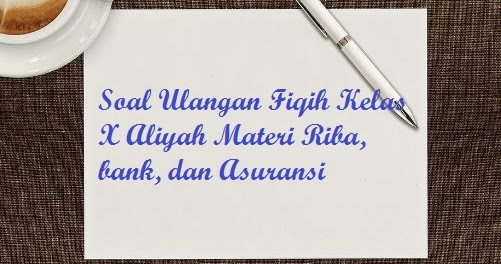 Soal Ulangan Fiqih Kelas
X Aliyah Materi Riba,
bank, dan Asuransi